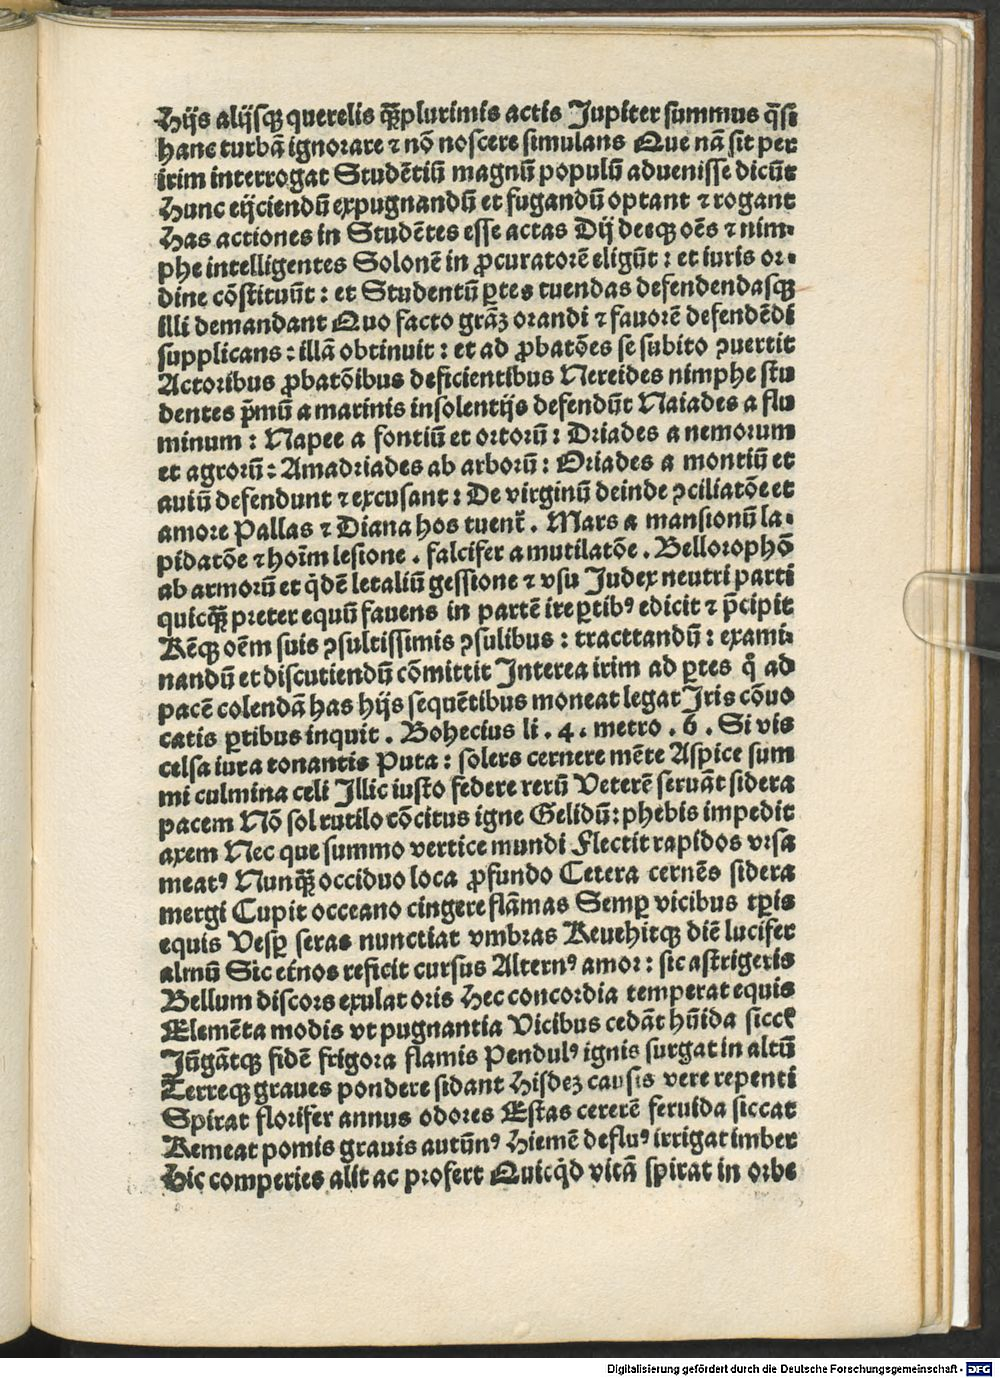 Hijs alijsqꝫ querelis qꝫ̄plurimis actis Jupiter summus q̄si
hanc turbā ignorare ⁊ nō noscere simulans Que nā sit per
irim interrogat Studētiū magnū populū aduenisse dicūt
Hunc eijciendū expugnandū et fugandū optant ⁊ rogant
Has actiones in Studētes esse actas Dij deeqꝫ oēs ⁊ nim⸗
phe intelligentes Solonē in ꝓcuratorē eligūt : et iuris or⸗
dine cōstituūt : et Studentū ꝑtes tuendas defendendasqꝫ
illi demandant Quo facto grāꝫ orandi ⁊ fauorē defendēdi
supplicans : illā obtinuit : et ad ꝓbatōes se subito ꝯuertit
Actoribus ꝓbatōibus deficientibus Nereides nimphe stu
dentes p̄mū a marinis insolentijs defendūt Naiades a flu
minum : Napee a fontiū et ortorū : Driades a nemorum
et agrorū : Amadriades ab arborū : Oriades a montiū et
auiū defendunt ⁊ excusant : De virginū deinde ꝯciliatōe et
amore Pallas ⁊ Diana hos tuent᷑ . Mars a mansionū la⸗
pidatōe ⁊ hoīm lesione . falcifer a mutilatōe . Bellorophō
ab armorū et q̇dē letaliū gessione ⁊ vsu Judex neutri parti
quicqꝫ̄ preter equū fauens in partē ire ꝑtibꝰ edicit ⁊ p̄cipit
Rēqꝫ oēm suis ꝯsultissimis ꝯsulibus : tracttandū : exami⸗
nandū et discutiendū cōmittit Interea irim ad ꝑtes q̊ ad
pacē colendā has hijs sequētibus moneat legat Iris cōuo
catis ꝑtibus inquit . Bohecius li . 4 . metro . 6 . Si vis
celsa iura tonantis Puta : solers cernere mēte Aspice sum
mi culmina celi Illic iusto federe rerū Veterē seruāt sidera
pacem Nō sol rutilo cōcitus igne Gelidū : phebis impedit
axem Nec que summo vertice mundi Flectit rapidos vrsa
meatꝰ Nunqꝫ̄ occiduo loca ꝓfundo Cetera cernēs sidera
mergi Cupit occeano cingere flāmas Semꝑ vicibus tꝑis
equis Vesꝑ seras nunctiat vmbras Reuehitqꝫ diē lucifer
almū Sic etnos reficit cursus Alternꝰ amor : sic astrigeris
Bellum discors exulat oris Hec concordia temperat equis
Elemēta modis vt pugnantia Vicibus cedāt hūida siccꝭ
Jūgātqꝫ fidē frigora flamis Pendulꝰ ignis surgat in altū
Terreqꝫ graues pondere sidant Hisdeꝫ causis vere repenti
Spirat florifer annus odores Estas cererē feruida siccat
Remeat pomis grauis autūnꝰ Hiemē defluꝰ irrigat imber
Hic comperies alit ac profert Quicq̇d vitā spirat in orbe
Digitalisierung gefördert durch die Deutsche Forschungsgemeinschaft - DFG